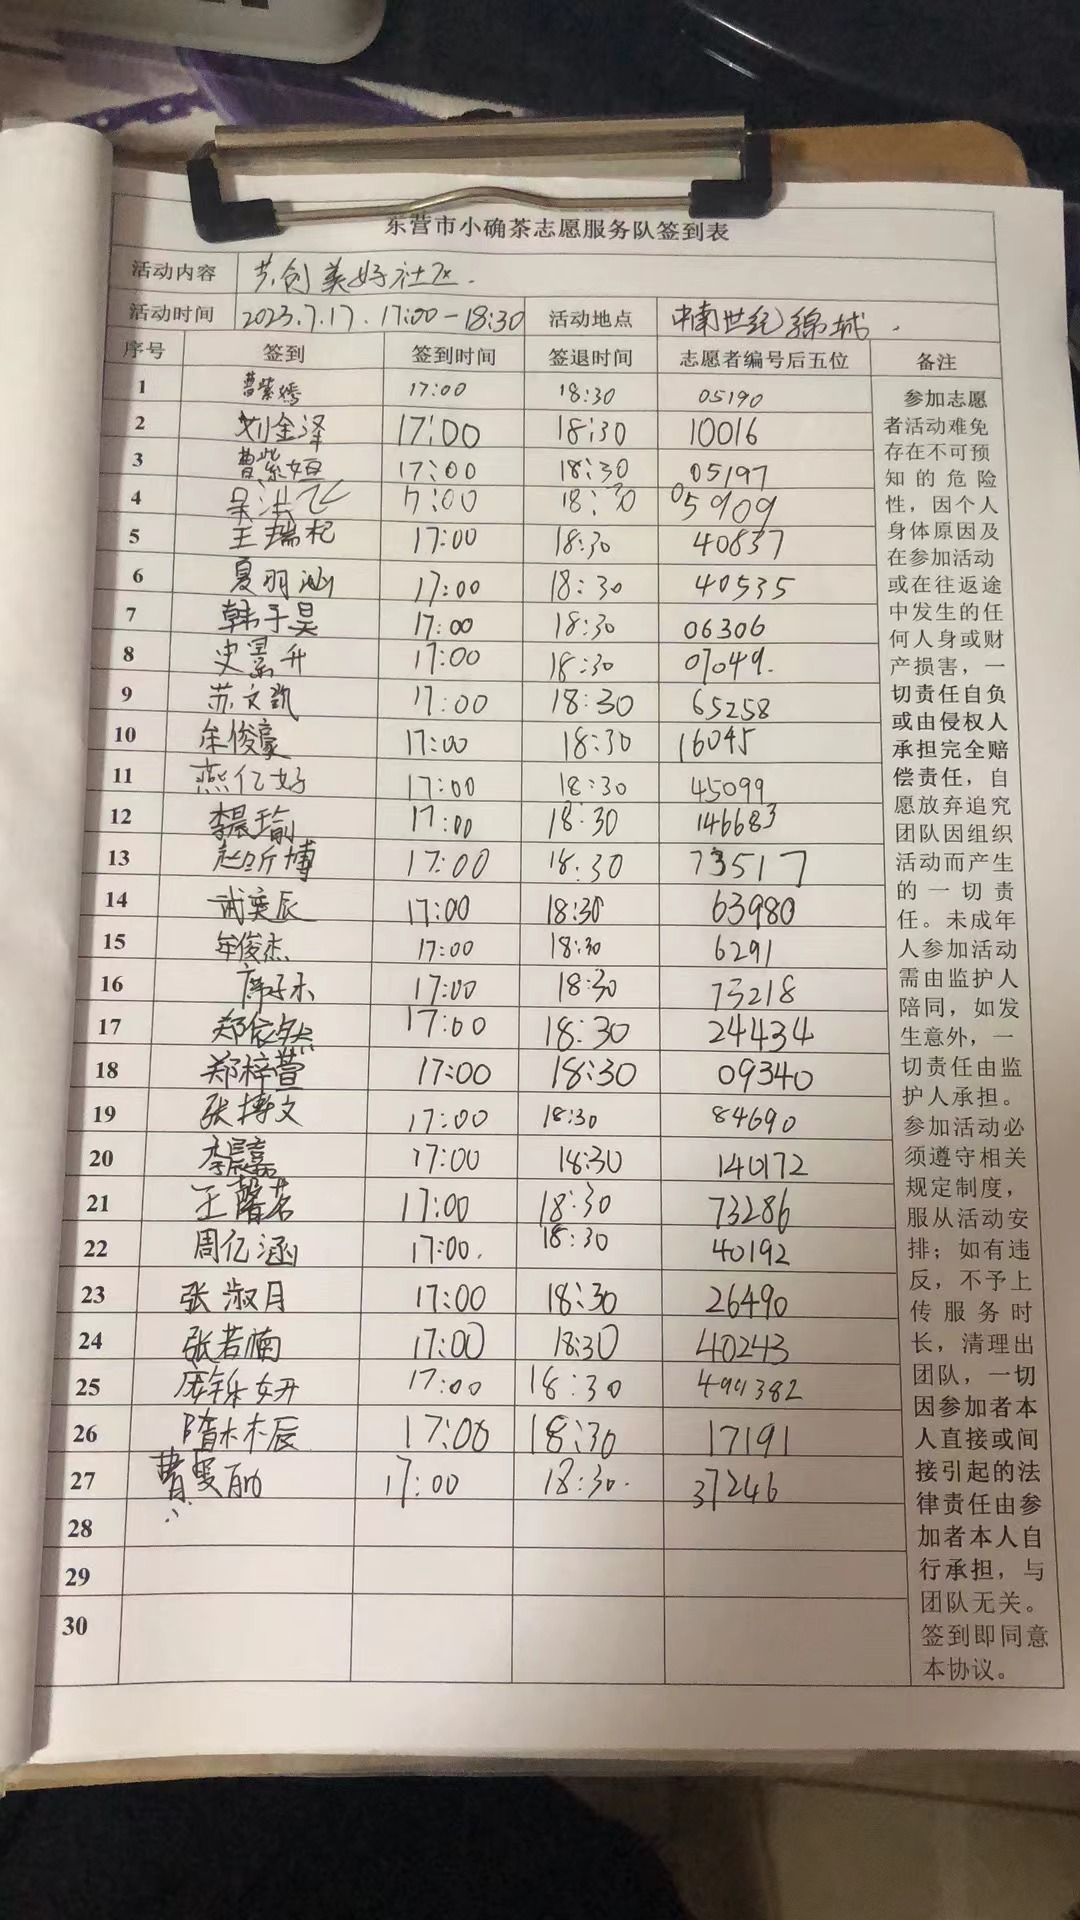 东营市小确茶志愿服务队签到表
活动内容 共创美好社区.
活动时间 2023.7.17. 17:00-18:30 活动地点 中南世纪锦城.
序号 签到 签到时间 签退时间 志愿者编号后五位 备注
1 曹紫嫣 17:00 18:30 05190
2 刘金泽 17:00 18:30 10016
3 曹紫姮 17:00 18:30 05197
4 吴洪飞 17:00 18:30 05909
5 王瑞杞 17:00 18:30 40837
6 夏羽涵 17:00 18:30 40535
7 韩子昊 17:00 18:30 06306
8 史景升 17:00 18:30 07049.
9 苏文凯 17:00 18:30 65258
10 牟俊豪 17:00 18:30 16045
11 燕亿好 17:00 18:30 45099
12 李晨瑜 17:00 18:30 146683
13 赵昕博 17:00 18:30 73517
14 武奕辰 17:00 18:30 63980
15 牟俊杰 17:00 18:30 6291
16 席子木 17:00 18:30 73218
17 郑依然 17:00 18:30 24434
18 郑梓萱 17:00 18:30 09340
19 张博文 17:00 18:30 84690
20 李晨嘉 17:00 18:30 140172
21 王馨茗 17:00 18:30 73286
22 周亿涵 17:00. 18:30 40192
23 张淑月 17:00 18:30 26490
24 张若楠 17:00 18:30 40243
25 17:00 18:30 494382
26 隋木辰 17:00 18:30 17191
27 曹曼 17:00 18:30. 37246
28
29
30
参加志愿
者活动难免
存在不可预
知的危险
性，因个人
身体原因及
在参加活动
或在往返途
中发生的任
何人身或财
产损害，一
切责任自负
或由侵权人
承担完全赔
偿责任，自
愿放弃追究
团队因组织
活动而产生
的一切责
任。未成年
人参加活动
需由监护人
陪同，如发
生意外，一
切责任由监
护人承担。
参加活动必
须遵守相关
规定制度，
服从活动安
排；如有违
反，不予上
传服务时
长，清理出
团队，一切
因参加者本
人直接或间
接引起的法
律责任由参
加者本人自
行承担，与
团队无关。
签到即同意
本协议。